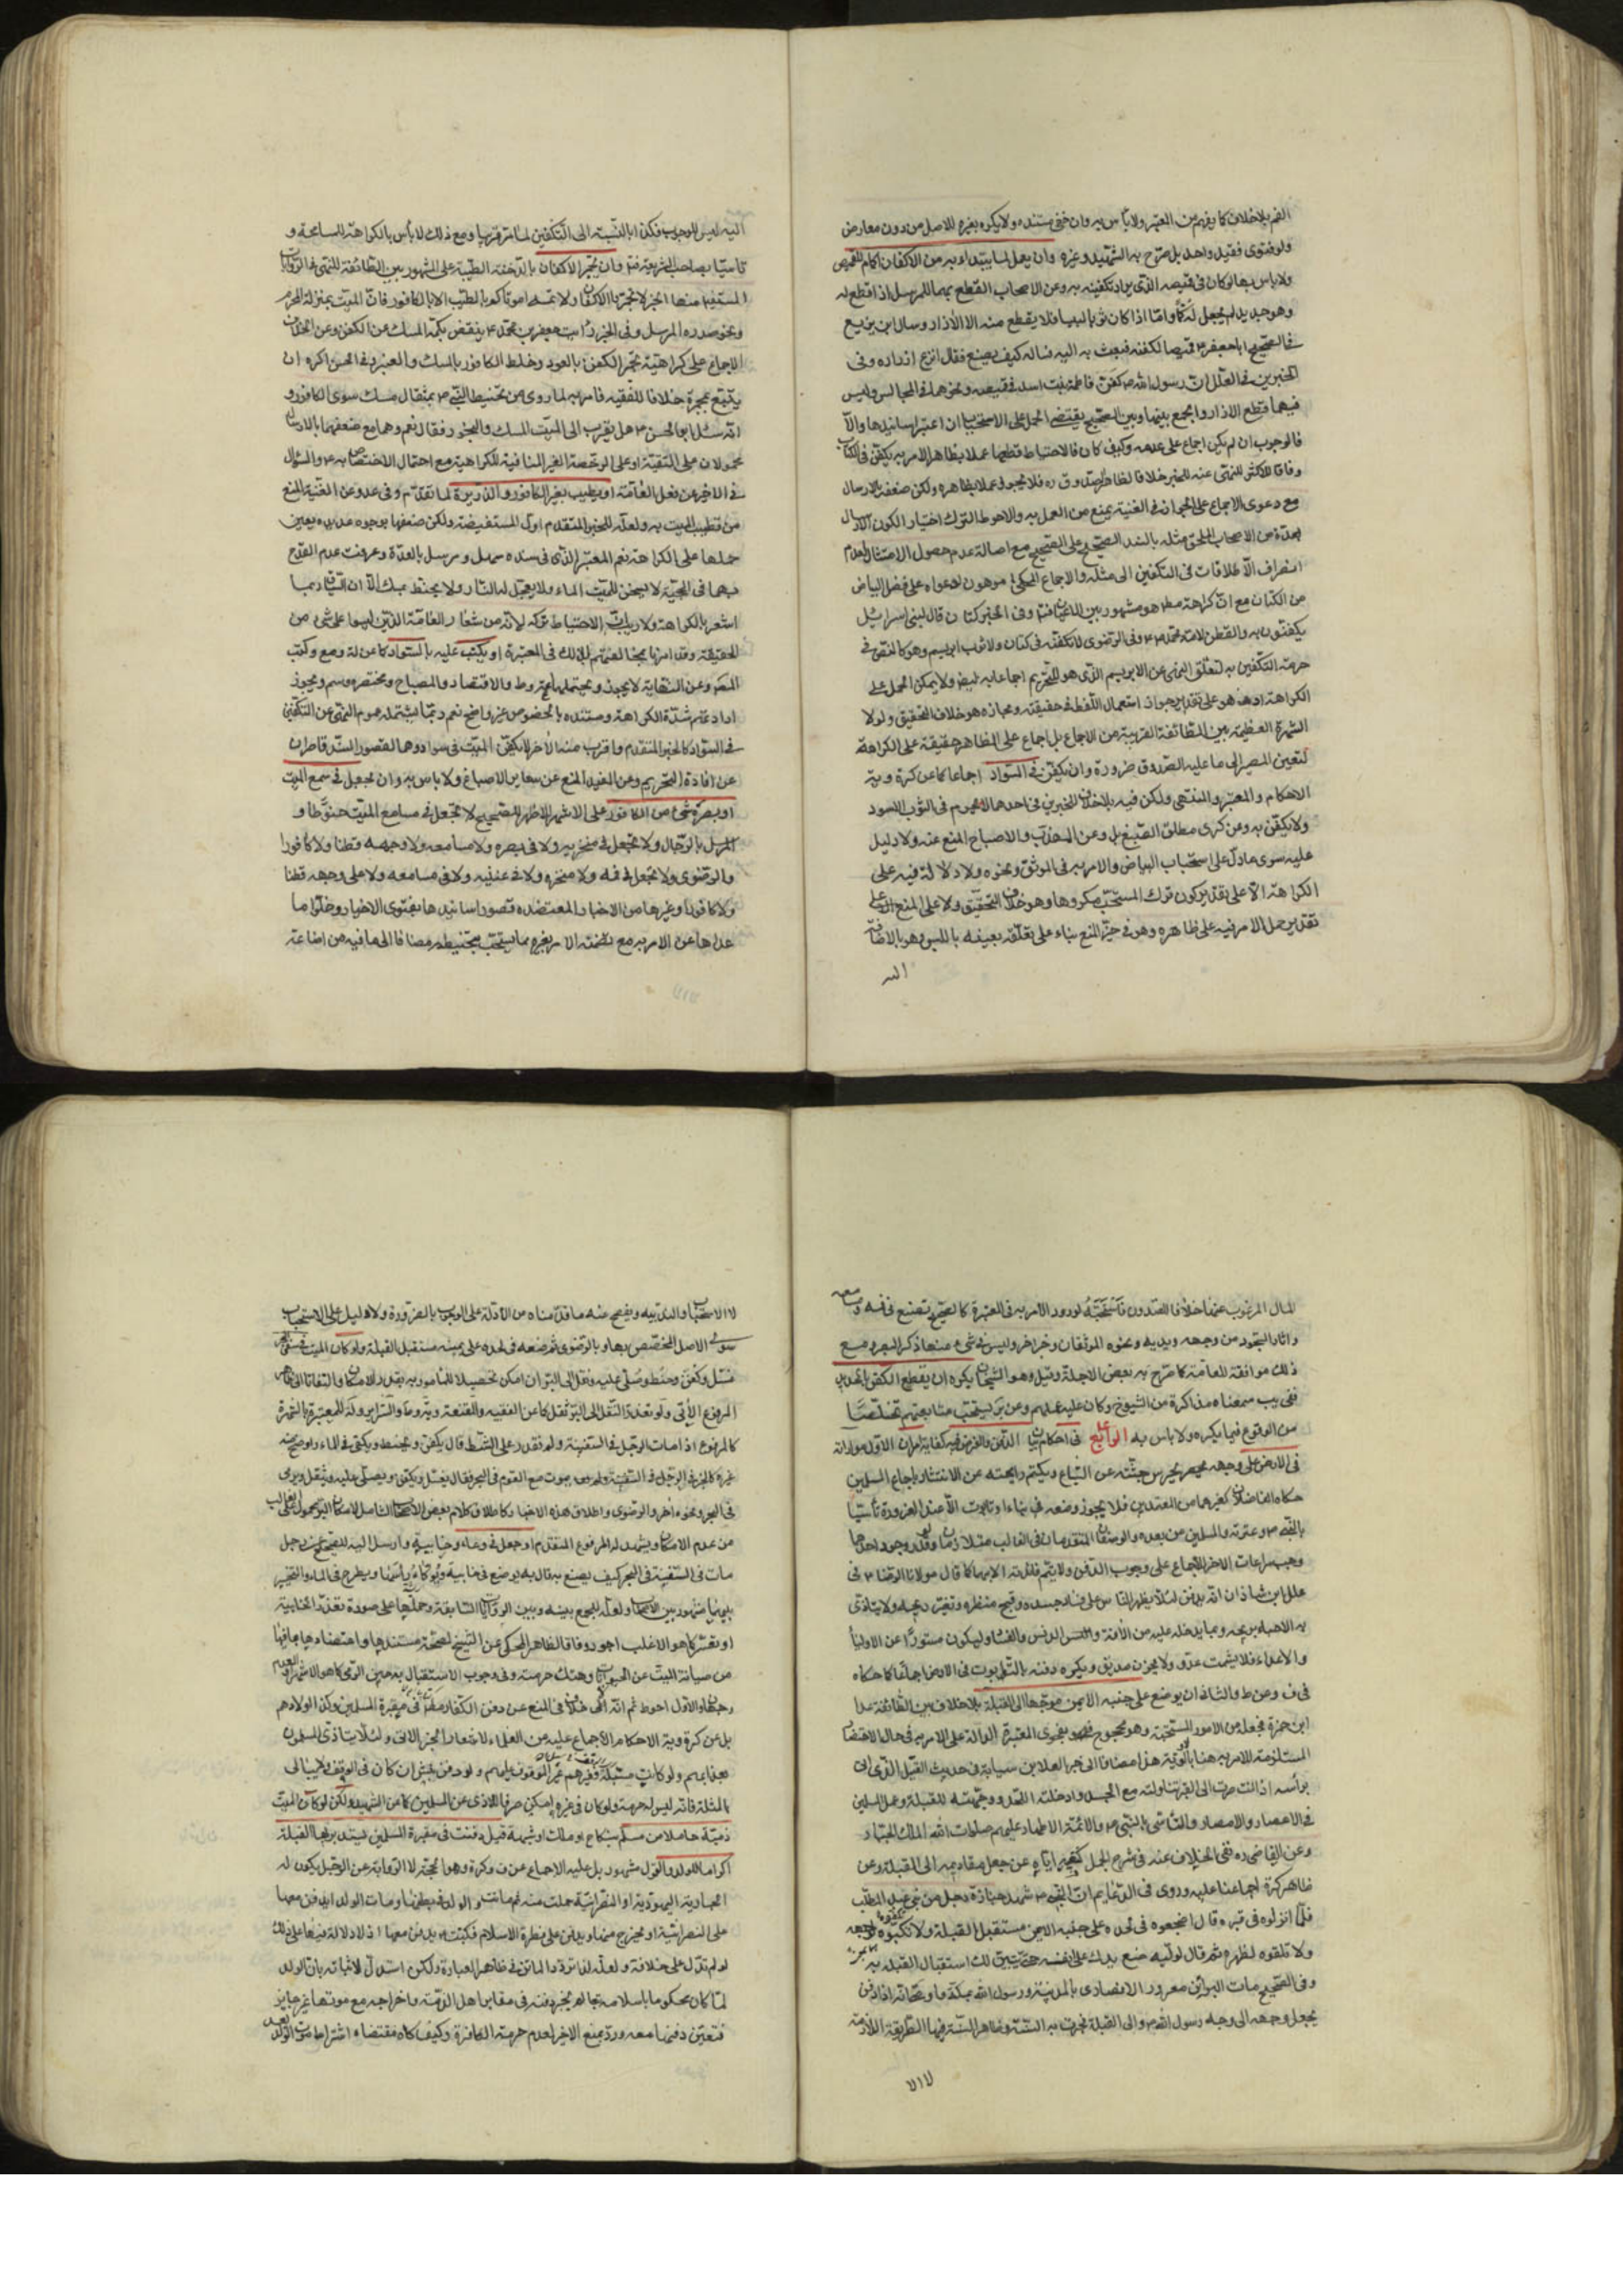 الفم بلا خلاف كما يفهم من المعتبر ولا بأس به وان خفي مستنده ولا يكره بغيره للاصل من دون معارض
ولو فتوى فقيل واحد بل صرح به الشهيد وغيره وان يعمل لما يبتدا به من الاكفان اكمام للقميص
ولا بأس بها لو كان في قميصه الذي يراد تكفينه به وعن الاصحاب القطع بهما للمرسل اذا قطع له
وهو جديد لم يجعل له كما واما اذا كان ثوبا لبيسا فلا يقطع منه الا الازرار وسال ابن بزيع
في الصحيح ابا جعفر ع قميصا لكفنه فبعث به اليه فساله كيف يصنع فقال انزع ازراره وفي
الخبرين في العلل ان رسول الله ص كفن فاطمة بنت اسد في قميصه ونحوهما في المجالس وليس
فيهما قطع الازرار والجمع بينهما وبين الصحيح يقتضي الحمل على الاستحباب ان اعتبر اسانيدها والا
فالوجوب ان لم يكن اجماع على عدمه وكيف كان فالاحتياط قطعها عملا بظاهر الامر به يكفن في الكتان
وفاقا للاكثر للنهي عنه للخبر خلافا لظاهر الصدوق ره فلا يجوز عملا بظاهره ولكن ضعفه بالارسال
مع دعوى الاجماع على الجواز في الغنية يمنع من العمل به والاحوط الترك اختيارا لكون الارسال
بعدة من الاصحاب الملحق مثله بالسند الصحيح على الصحيح مع اصالة عدم حصول الامتثال لعدم
انصراف الاطلاقات في التكفين الى مثله والاجماع المحكي موهون لدعواه على فضل البياض
من الكتان مع ان كراهته مط هو مشهور بين اللاحقين وفي الخبر كتان قال لبني اسرائيل
يكفنون به والقطن لامة محمد ص وفي الرضوي لا تكفنه في كتان ولا ثوب ابريسم وهو كالنص في
حرمة التكفين به لتعلق النهي عن الابريسم الذي هو للتحريم اجماعا به ايضا ولا يمكن الحمل على
الكراهة اذ هو على تقدير جواز استعمال اللفظ في حقيقته ومجازه هو خلاف التحقيق ولولا
الشهرة العظيمة بين الطائفة القريبة من الاجماع بل اجماع على الظاهر حقيقة على الكراهة
لتعين المصير الى ما عليه الصدوق ضرورة وان يكفن في السواد اجماعا كما عن كرة وية
الاحكام والمعتبر والمنتهى ولكن فيه بلا خلاف للخبرين في احدهما لا يحرم في الثوب الاسود
ولا يكفن به وعن كرى مطلق الصبغ بل وعن المهذب والاصباح المنع عنه ولا دليل
عليه سوى ما دل على استحباب البياض والامر به في الموثق ونحوه ولا دلالة فيه على
الكراهة الا على تقدير كون ترك المستحب مكروها وهو خلاف التحقيق ولا على المنع الا على
تقدير حمل الامر فيه على ظاهره وهو في حيز المنع بناء على تعلقه بعينه باللبس وهو بالاضافة
اليه
اليه ليس للوجوب فكذا بالنسبة الى التكفين لما مر قريبا ومع ذلك لا بأس بالكراهة للمسامحة و
تاسيا بصاحب الشريعة ص وان يجمر الاكفان بالدخنة الطيبة على المشهور بين الطائفة للنهي في الروايات
المستفيضة منها الخبر لا تجمروا الاكفان ولا تمسوا موتاكم بالطيب الا بالكافور فان الميت بمنزلة المحرم
ونحو صدره المرسل وفي الخبر رأيت جعفر بن محمد ع ينفض بكمه المسك عن الكفن وعن الخلاف
الاجماع على كراهية تجمير الكفن بالعود وخلط الكافور بالمسك والعنبر وفي الحسن اكره ان
يتبع بمجمرة خلافا للفقيه فامر به لما روي من تحنيط النبي ص بمثقال مسك سوى الكافور و
انه سئل ابو الحسن ع هل يقرب الى الميت المسك والبخور فقال نعم وهما مع ضعفهما بالارسال
محمولان على التقية او على الرخصة الغير المنافية للكراهية مع احتمال الاختصاص به ص والسؤال
في الاخير عن فعل العامة او يطيب بغير الكافور والذريرة لما تقدم وفي عدو عن الغنية المنع
من تطييب الميت به ولعله للخبر المتقدم اول المستفيضة ولكن ضعفها بوجوه عديدة يعين
حملها على الكراهة نعم المعتبر الذي في سنده سهل ومرسل بالعدة وعرفت عدم القدح
بهما في الحجية لا يسخن للميت الماء ولا يعجل له النار ولا يحنط بمسك الا ان السياق ربما
اشعر بالكراهة ولا ريب ان الاحتياط تركه لانه من شعار العامة الذين ليسوا على شيء من
الحقيقة وقد امرنا بمخالفتهم لذلك في المعتبرة او يكتب عليه بالسواد كما عن لة وصع وكتب
المصر وعن النهاية لا يجوز ويحتملها ط والاقتصاد والمصباح ومختصره وسم ويجوز
ارادتهم شدة الكراهة ومستنده بالخصوص غير واضح نعم ربما يشمله عموم النهي عن التكفين
في السواد كالخبر المتقدم واقرب منه الاخر لا يكفن الميت في سواد وهما لقصور السند قاصران
عن افادة التحريم وعن المفيد المنع عن سائر الاصباغ ولا بأس به وان يجعل في سمع الميت
او بصره شيء من الكافور على الاشهر الاظهر للصحيح لا تجعل في مسامع الميت حنوطا و
المرسل بالرجال ولا تجعل في منخريه ولا في بصره ولا مسامعه ولا وجهه قطنا ولا كافورا
والرضوي ولا تجعل في فيه ولا منخره ولا في عينيه ولا في مسامعه ولا على وجهه قطنا
ولا كافورا وغيرها من الاخبار المعتضدة قصور اسانيدها بفتوى الاخيار وخلو ما
عداها عن الامر به مع تضمنه الامر بغيره مما يستحب تحنيطه مضافا الى ما فيه من اضاعة
المال المرغوب عنها خلافا للصدوق فاستحبه لورود الامر به في المعتبرة كالصحيح تضع في فيه ومسامعه
واثار السجود من وجهه ويديه ونحوه الموثقان وخبر اخر وليس في شيء منها ذكر البصر ومع
ذلك موافقة للعامة كما صرح به بعض الاجلة وقيل وهو الشيخان يكره ان يقطع الكفن بالحديد
ففي يب سمعناه مذاكرة من الشيوخ وكان عليه عملهم وعن بر يستحب متابعتهم تخلصا
من الوقوع فيما يكره ولا بأس به الرابع في احكام الدفن والفرض فيه كفاية امران الاول مواراته
في الارض على وجه يحرس جثته عن السباع ويكتم رائحته عن الانتشار باجماع المسلمين
حكاه الفاضلان كغيرهما من المعتمدين فلا يجوز وضعه في بناء او تابوت الا عند الضرورة تأسيا
بالنبي ص وعترته والمسلمين من بعده والوصفان المتقدمان في الغالب متلازمان ولو قدر وجود احدهما
وجب مراعات الاخر للاجماع على وجوب الدفن ولا يتم فائدته الا بهما كما قال مولانا الرضا ع في
علل ابن شاذان انه يدفن لئلا يظهر الناس على فساد جسده وقبح منظره وتغير ريحه ولا يتاذى
به الاحياء بريحه وبما يدخل عليه من الافة والدنس والفساد وليكون مستورا عن الاولياء
والاعداء فلا يشمت عدو ولا يحزن صديق ويكره دفنه بالتابوت في الارض اجماعا كما حكاه
في ف وعن ط والثاني ان يوضع على جنبه الايمن موجها الى القبلة بلا خلاف بين الطائفة عدا
ابن حمزة فجعله من الامور المستحبة وهو محجوج بفحوى المعتبرة الدالة على الامر به في حال الاحتضار
المستلزمة للامر به هنا بالاولوية هذا مضافا الى خبر العلا بن سيابة في حديث القتيل الذي اتي
برأسه اذا انت صرت الى القبر تناولته مع الجسد وادخلته اللحد ووجهته للقبلة وعمل المسلمين
في الاعصار والامصار والتأسي بالنبي ص والائمة الاطهار عليهم صلوات الله الملك الجبار
وعن القاضي ره نفي الخلاف عنه في شرح الجمل كغيره اياه عن جعل مقاديمه الى القبلة وعن
ظاهر كرة اجماعنا عليه وروي في الدعائم ان النبي ص شهد جنازة رجل من بني عبد المطلب
فلما انزلوه في قبره قال اضجعوه في لحده على جنبه الايمن مستقبل القبلة ولا تكبوه لوجهه
ولا تلقوه لظهره ثم قال لوليه ضع يدك على انفه حتى يتبين لك استقبال القبلة به
وفي الصحيح مات البراء بن معرور الانصاري بالمدينة ورسول الله بمكة فاوصى انه اذا دفن
يجعل وجهه الى وجه رسول الله ص والى القبلة فجرت به السنة وظاهر السنة فيها الطريقة اللازمة
لا الا
لا الاستحباب والندبية ويفصح عنه ما قدمناه من الادلة على الوجوب بالضرورة ولا دليل على الاستحباب
سوى الاصل المخصص بها وبالرضوي ثم ضعه في لحده على يمينه مستقبل القبلة ولو كان الميت في البحر
غسل وكفن وحنط وصلي عليه ونقل الى البر ان امكن تحصيلا للمأمور به بقدر الامكان والتفاتا الى ظاهر
المرفوع الاتي ولو تعذر النقل الى البر ثقل كما عن الفقيه والمقنعة وية وط والسرائر ولة للمعتبرة بالشهرة
كالمرفوع اذا مات الرجل في السفينة ولم نقدر على الشط قال يكفن ويحنط ويلقى في الماء واوضح منه
غيره كالخبر في الرجل في السفينة يموت مع القوم في البحر فقال يغسل ويكفن ويصلى عليه ويثقل ويرمى
في البحر ونحوه اخر والرضوي واطلاق هذه الاخبار كاطلاق كلام بعض الاصحاب الشامل لامكان البر محمول على الغالب
من عدم الامكان ويشهد له المرفوع المتقدم او جعل في وعاء وخابية وارسل اليه للصحيح عن رجل
مات في السفينة في البحر كيف يصنع به قال به يوضع في خابية ويوكأ رأسها ويطرح في الماء والتخيير
بينهما مشهور بين الاصحاب ولعله للجمع بينه وبين الروايات السابقة وحملها على صورة تعذر الخابية
او تعسر كما هو الاغلب اجود وفاقا لظاهر المحكي عن الشيخ لصحة مستندها واعتضادها بما فيها
من صيانة الميت عن الحيوانات وهتك حرمته وفي وجوب الاستقبال به حين الرمي كما هو الاشهر او العدم
وجهان والاول احوط ثم انه لا خلاف في المنع عن دفن الكفار في مقبرة المسلمين وكذا اولادهم
بل عن كرة وية الاحكام الاجماع عليه من العلماء لاشعار الخبر الاتي ولئلا يتاذى المسلمون
بعذابهم ولو كانت مسبلة فغيرهم غير الموقوف عليهم ولو دفن نبش ان كان في الوقف ولا يبالى
بالمثلة فانه ليس له حرمة ولو كان في غيره امكن صرفا للاذى عن المسلمين كما عن الشهيد ولكن لو كان الميت
ذمية حاملا من مسلم بنكاح او ملك او شبهة قيل دفنت في مقبرة المسلمين يستدبر بها القبلة
اكراما للولد والقول مشهور بل عليه الاجماع عن ف وكرة وهو الحجة لا الرواية عن الرجل يكون له
الجارية اليهودية او النصرانية حملت منه ثم ماتت والولد في بطنها ومات الولد ايدفن معها
على النصرانية او يخرج منها ويدفن على فطرة الاسلام فكتب ع يدفن معها اذ لا دلالة فيها على ذلك
لو لم تدل على خلافه ولعله لذا تردد الماتن في ظاهر العبارة ولكن استدل لاثباته بان الولد
لما كان محكوما باسلامه تبعا لم يجز دفنه في مقابر اهل الذمة واخراجه مع موتها غير جايز
فتعين دفنها معه ورد بمنع الاخير لعدم حرمة الكافرة وكيف كان مقتضاه اشتراط موت الولد بعد